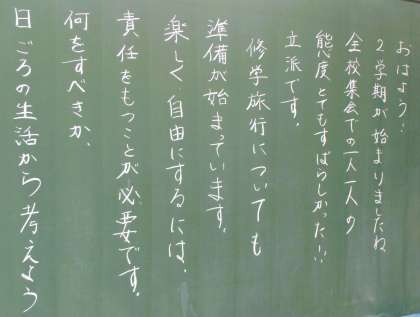 おはよう!
2学期が始まりましたね
全校集会での一人一人の
態度とてもすばらしかった!!
立派です。
修学旅行についても
準備が始まっています。
楽しく、自由にするには、
責任をもつことが必要です。
何をすべきか、
日ごろの生活から考えよう